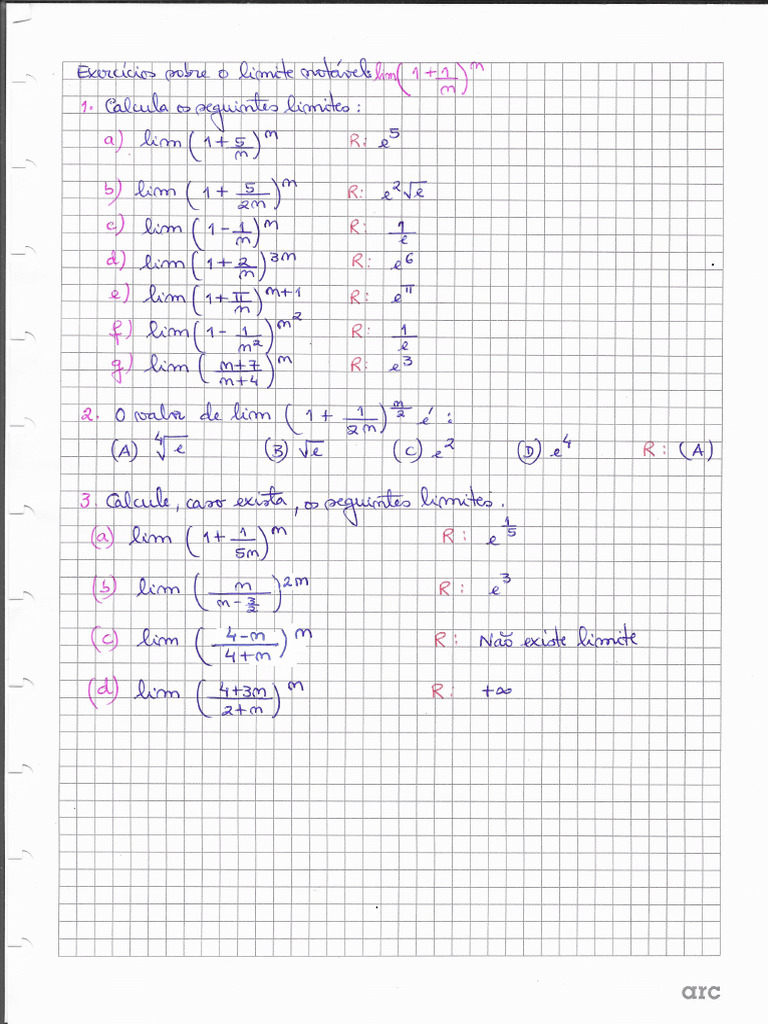 Exercícios sobre o limite notável: lim(1+1/n)^n
1. Calcula os seguintes limites:
a) lim(1+5/n)^n R: e^5
b) lim(1+5/2n)^n R: e^2√e
c) lim(1-1/n)^n R: 1/e
d) lim(1+2/n)^3n R: e^6
e) lim(1+π/n)^n+1 R: e^π
f) lim(1-1/n^2)^n^2 R: 1/e
g) lim(n+7/n+4)^n R: e^3
2. O valor de lim (1+1/2n)^n/2 é:
(A) ⁴√e (B) √e (C) e^2 (D) e^4 R: (A)
3. Calcule, caso exista, os seguintes limites.
(a) lim (1+1/5n)^n R: e^1/5
(b) lim (n/n-3/2)^2n R: e^3
(c) lim (4-n/4+n)^n R: Não existe limite
(d) lim (4+3n/2+n)^n R: +∞
arc